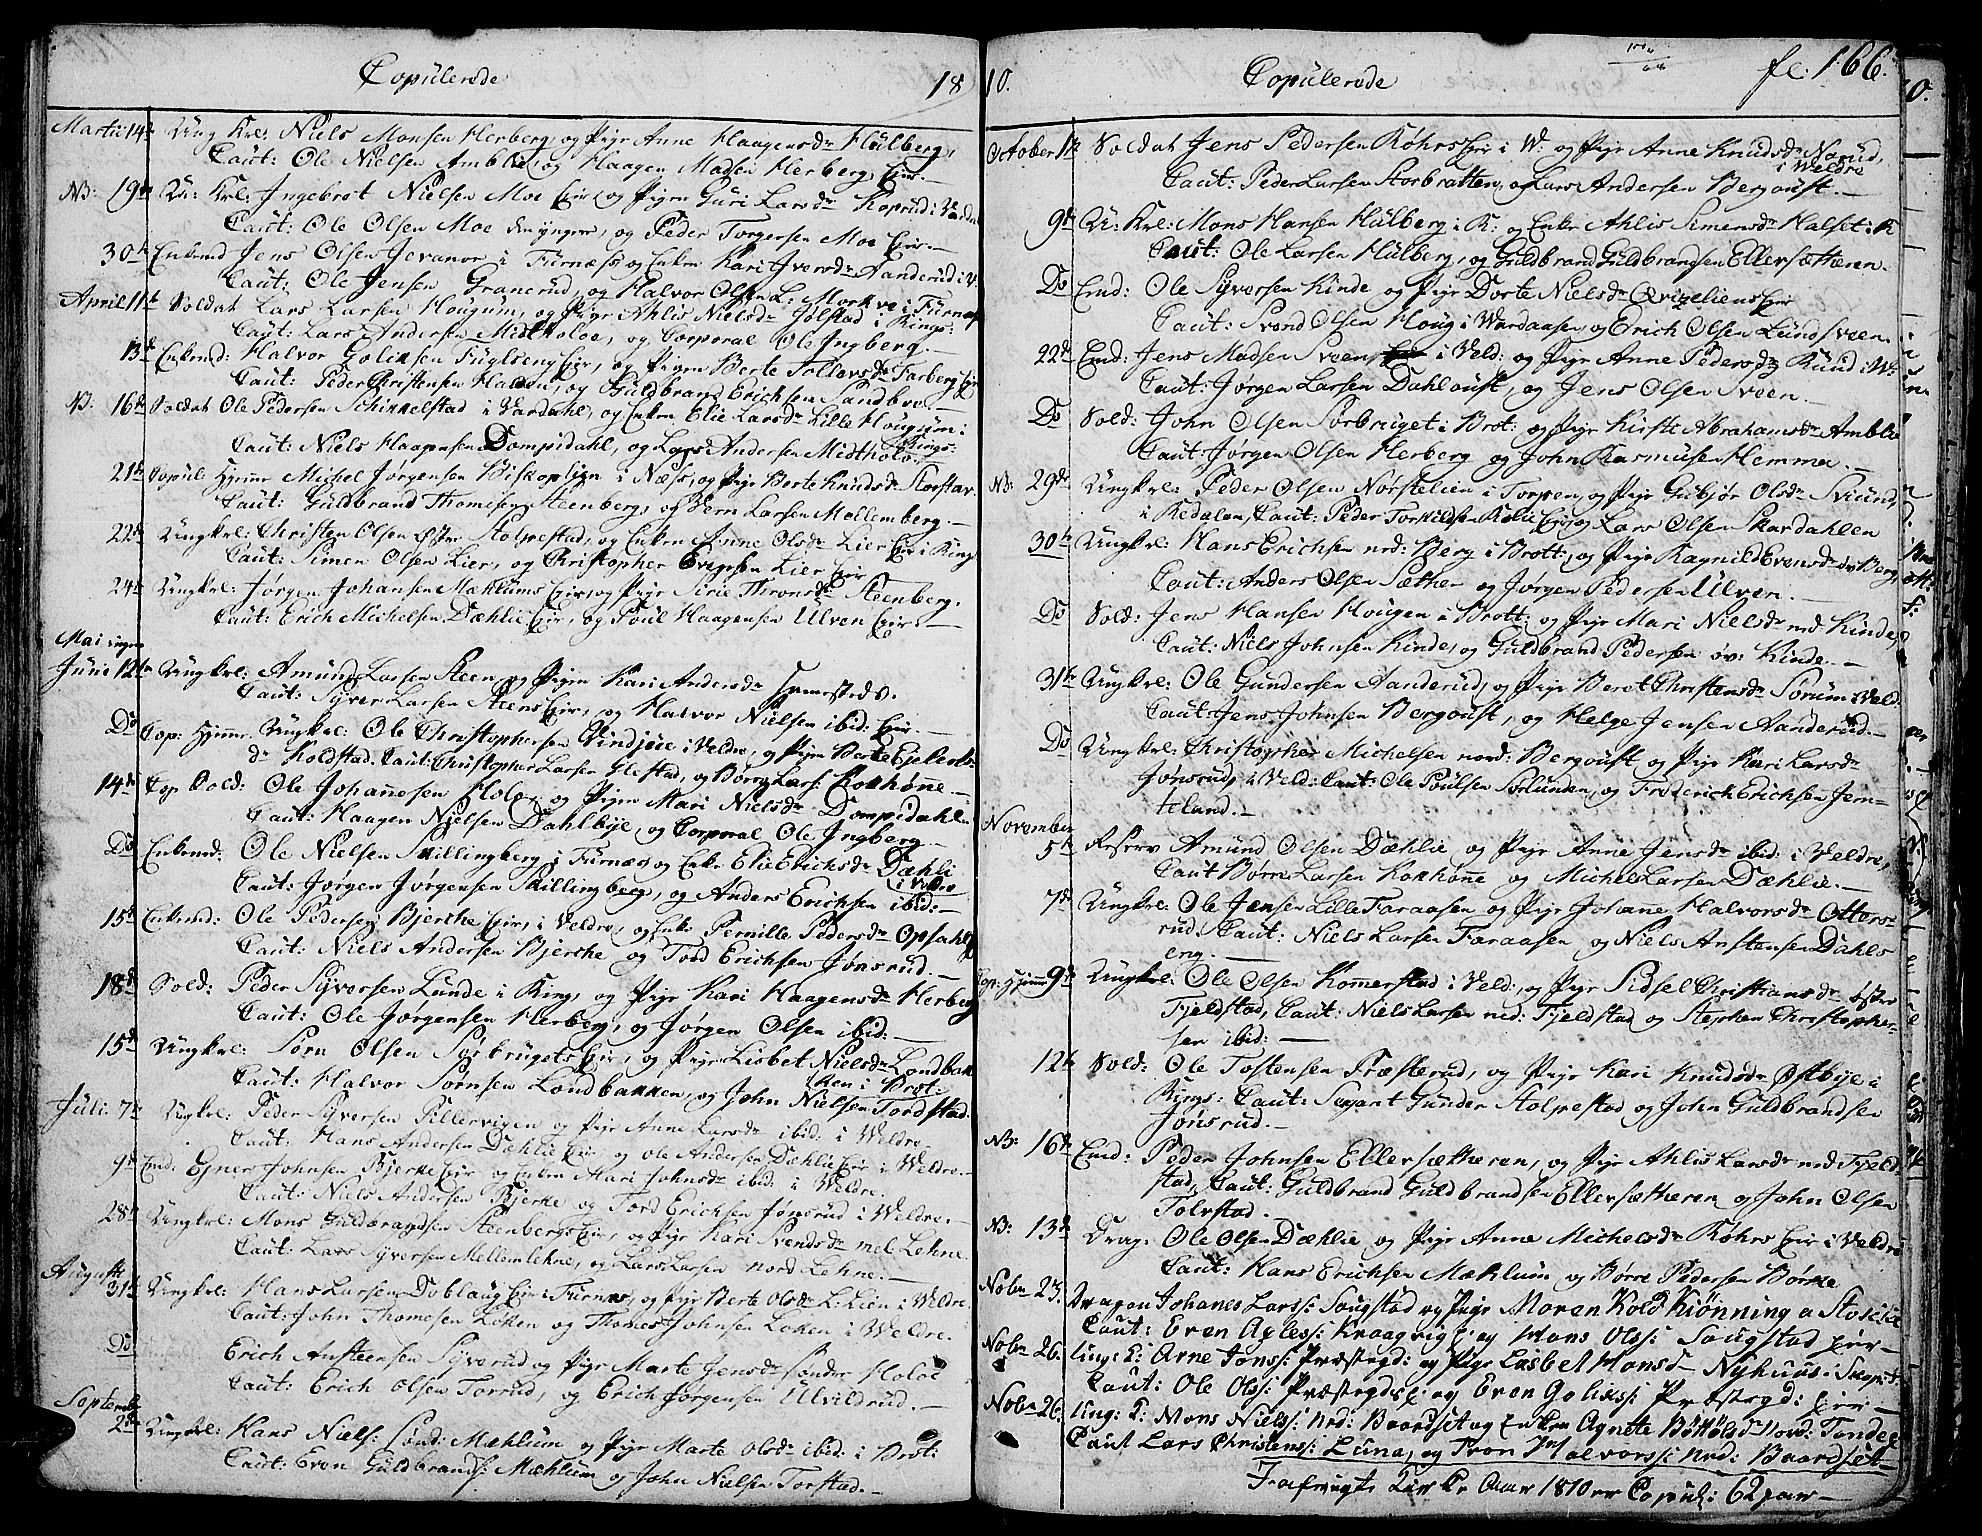 Copulerede 18
Martii 14de Ung Krl: Niels Monsen Herberg, og Pige Anne Haagensdr Hulberg,
Caut: Ole Nielsen Amblie, og Haagen Madsen Herberg, Eier.
NB: 19de U: Krl: Ingebret Nielsen Moe Eier, og Pigen Guri Larsdr Koprud i Vardal
Caut: Ole Olsen Moe den yngere, og Peder Torgersen Moe Eier.
30te Enkemd Jens Olsen Jevanor i Furnæss og Enken Kari Iversdr Aanderud i V.
Caut: Ole Jensen Granerud, og Halvor Olsen L: Morkve i Furnæs
April 11te Soldat Lars Larsen Hougum, og Pige Ahlis Nielsdr Jølstad i Rings:
Caut: Lars Andersen Midtholoe, og Corporal Ole Ingberg.
13de Enkemd: Halvor Goliksen Fuglseng Eier, og Pigen Berte Tollovsdr Farberg Eier
Caut: Peder Christensen Halden, og Guldbrand Erichsen Sandboe.
NB: 16de Soldat Ole Pedersen Schikkelstad i Vardahl, og Enken Elie Larsdr Lille Hougum i Rings:
Caut: Niels Haagensen Dompidahl, og Lars Andersen Midtholoe.
21de Copul: Hjemme Michel Jørgensen Biskoplien i Næss, og Pige Berte Knudsdr Storstav
Caut: Guldbrand Thomesen Steenberg, og Bern Larsen Mellemberg.
22de Ungkrl: Christen Olsen Stolpestad, og Enken Anne Olsdr Lier Eier i Ring
Caut: Simen Olsen Lier, og Christopher Lier Eier
24de Ungkrl: Jørgen Johansen Mæhlums Eier, og Pige Sirie Thronsdr Steenberg.
Caut: Erich Michelsen Dæhlie Eier, og Poul Haagensen Ulven Eier.
Mai ingen
Junii 12te Ungkrl: Amund Larsen Steen og Pigen Kari Andersdr Hemstede.
Caut: Syver Larsen Steens Eier, og Halvor Nielsen ibid: Eier.
Do Cop: Hjemme. Ungkrl: Ole Christophersen Vindjue i Veldre, og Pigen Berte Ejlertsdr
Koldstad. Caut: Christopher Larsen Glestad, og Børre Lars: Kokhønne
14de Cop Sold: Ole Johannesen Hole, og Pigen Mari Nielsdr Dompidahl
Caut: Haagen Nielsen Dahlbye, og Corporal Ole Ingberg.
Do Enkemd: Ole Nielsen Skillingberg i Furnæs og Enke Elie Erichsdr Dæhli i Veldre
Caut: Jørgen Jørgensen Skillingberg, og Anders Erichsen ibid:
15de Enkemd: Ole Pedersen Bjerche Eier, i Veldre, og Enke Pernille Pedersdr Opsahl
Caut: Niels Andersen Bjerche og Tord Erichsen Jønsrud.
18de Sold: Peder Syversen Lunde i Ring, og Pige Kari Haagensdr Herberg
Caut: Ole Jørgensen Herberg, og Jørgen Olsen ibid:
15de Ungkrl: Sørn Olsen Sørbrugets Eier, og Pige Lisbet Nielsdr Londbakken i Brot:
Caut: Halvor Sørnsen Londbakken, og John Nielsen Tordstad.
Juli 7de Ungkrl: Peder Syversen Pillervigen og Pige Anne Larsdr ibid: i Weldre.
Caut: Hans Andersen Dæhlie Eier, og Ole Andersen Dæhlie Eier i Weldre.
9de Emd: Egner Johnsen Bjerke Eier og Enken Mari Johnsdr ibid: i Weldre.
Caut: Niels Andersen Bjerke og Tord Erichsen Jønsrud i Weldre.
28de Ungkrl: Mons Guldbrandsen Steenbergs Eier, og Pige Kari Svendsdr mel: Lehne.
Caut: Lars Syversen Mellemlehne, og Lars Larsen nord Lehne.
Augusti 31te Ungkrl: Hans Larsen Doblaug Eier i Furnæs, og Pige Berte Olsdr L: Lien i Weldre.
Caut: John Thomesen Løken og Thomes Johnsen Løken i Weldre.
Do Erich Austeensen Syverud og Pige Marte Jensdr sønder Holoe
Caut: Erich Olsen Torrud, og Erich Jørgensen Ulvildrud.
Septembr 2den Ungkrl: Hans Niels: Sønd: Mæhlum og Pige Marte Olsdr ibid: i Brot:
Caut: Even Guldbrands: Mæhlum og John Nielsen Torstad.
10. Copulerede fl: 166.
October 1te Soldat Jens Pedersen Røhrs Eier i W: og Pige Anne Knudsdr Norud, i Weldre
Caut: Peder Larsen Storbratten, og Lars Andersen Bergoust.
9de U: Krl: Mons Hansen Hulberg i R: og Enke Ahlis Simensdr Halset i R
Caut: Ole Larsen Hulberg, og Guldbrand Guldbrandsen Ellersætheren.
Do Emd: Ole Syversen Kinde og Pige Dorte Nielsdr Qvigeliens Eier
Caut: Svend Olsen Houg i Wardaasen, og Erich Olsen Lundsveen.
22de Emd: Jens Madsen Sveen i Veld: og Pige Anne Pedersdr Ruud i W:
Caut: Jørgen Larsen Dahloust, og Jens Olsen Sveen.
Do Sold: John Olsen Sørbruget i Brot: og Pige Kirsti Abrahamsdr Amblie
Caut: Jørgen Olsen Herberg og John Rasmusen Hemma.
NB: 29de Ungkrl: Peder Olsen Nørstelien i Torpen, og Pige Gubjør Olsdr Sviund,
i Redalen, Caut: Peder Torkildsen Kolie Eier og Lars Olsen Skardahlen
30te Ungkrl: Hans Erichsen ned: Berg i Brott: og Pige Ragnild Evensdr øv: Berg,
Caut: Anders Olsen Sæther og Jørgen Pedersen Ulven.
Do Sold: Jens Hansen Hougen i Brott: og Pige Mari Nielsdr ned Kinde,
Caut: Niels Johnsen Kinde, og Guldbrand Pedersen øv: Kinde.
31te Ungkrl: Ole Gundersen Aanderud, og Pige Beret Christensdr Sørum i Veld.
Caut: Jens Johnsen Bergoust, og Helge Jensen Aanderud.
Do Ungkrl: Christopher Michelsen nord: Bergoust og Pige Kari Larsdr
Jønsrud, i Veld: Caut: Ole Poulsen Sørlunden, og Frederich Erichsen Jern-
teland.
November 5te Reserv Amund Olsen Dæhlie og Pige Anne Jensdr ibid: i Veldre,
Caut Børre Larsen Kokhønne og Michel Larsen Dæhlie.
7de Ungkrl: Ole Jensen Lille Faraasen og Pige Johanne Halvorsdr Otters-
rud, Caut: Niels Larsen Faraasen og Niels Anstensen Dahls
eng.
Cop: Hjemme 9de Ungkrl: Ole Olsen Kommerstad i Veld:, og Pige Sidsel Christiansdr østre
Fjeldstad, Caut: Niels Larsen ned: Fjeldstad og Stephen Christopher-
sen ibid:
12te Sold: Ole Tostensen Præsterud, og Pige Kari Knudsdr Østbye i
Rings: Caut: Gunder Stolpestad og John Guldbrandsen
Jønsrud.
NB: 16de Emd: Peder Johnsen Ellersætheren, og Pige Ahlis Larsdr ned Fjeld-
stad, Caut: Guldbrand Guldbrandsen Ellersætheren og John Olsen
Tolvstad.
NB: 13de Drag: Ole Olsen Dæhlie og Pige Anne Michelsdr Røhrs Eier i Veldre
Caut: Hans Erichsen Mæhlum og Børre Pedersen Børke
Nobr 23. Dragon Johanes Larss: Saugstad og Pige Maren Kold Kiønning a
Caut: Even Axless: Kraagvig E: og Hans Olss: Saugstad Eier
Nobr 26. Ung: K: Arne Jonss: Præstegd: og Pige Lisbet Hansdr Nyhuus i
Caut: Ole Olss: Præstegd: E: og Even Goliks: Præstegd: Eier
Nobr 26. Ung: K: Mons Nielss: Nrd: Baardset og Enken Agnete Nord: Tande
Caut Lars Christenss: Luna, og Tron Halvorss: Nrd: Baardset
Aar 1810 er Copul: 62 par